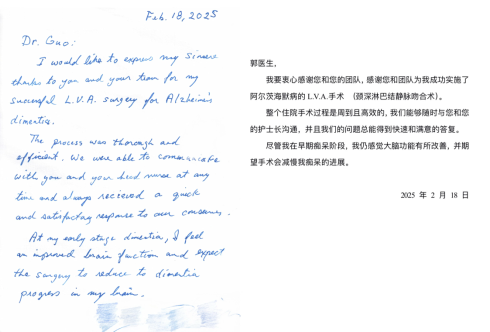 Feb. 18, 2025
Dr. Guo:
I would like to express my sincere
thanks to you and your team for my
successful L.V.A. surgery for Alzheimer's
dimentia.
The process was thorough and
efficient. We were able to communicate
with you and your head nurse at any
time and always recieved a quick
and satisfactory response to our concerns.
At my early stage dimentia, I feel
an improved brain function and expect
the surgery to reduce to dimentia
progress in my brain.
郭医生，
我要衷心感谢您和您的团队，感谢您和团队为我成功实施了
阿尔茨海默病的 L.V.A.手术 （颈深淋巴结静脉吻合术）。
整个住院手术过程是周到且高效的，我们能够随时与您和您
的护士长沟通，并且我们的问题总能得到快速和满意的答复。
尽管我在早期痴呆阶段，我仍感觉大脑功能有所改善，并期
望手术会减慢我痴呆的进展。
2025 年 2 月 18 日